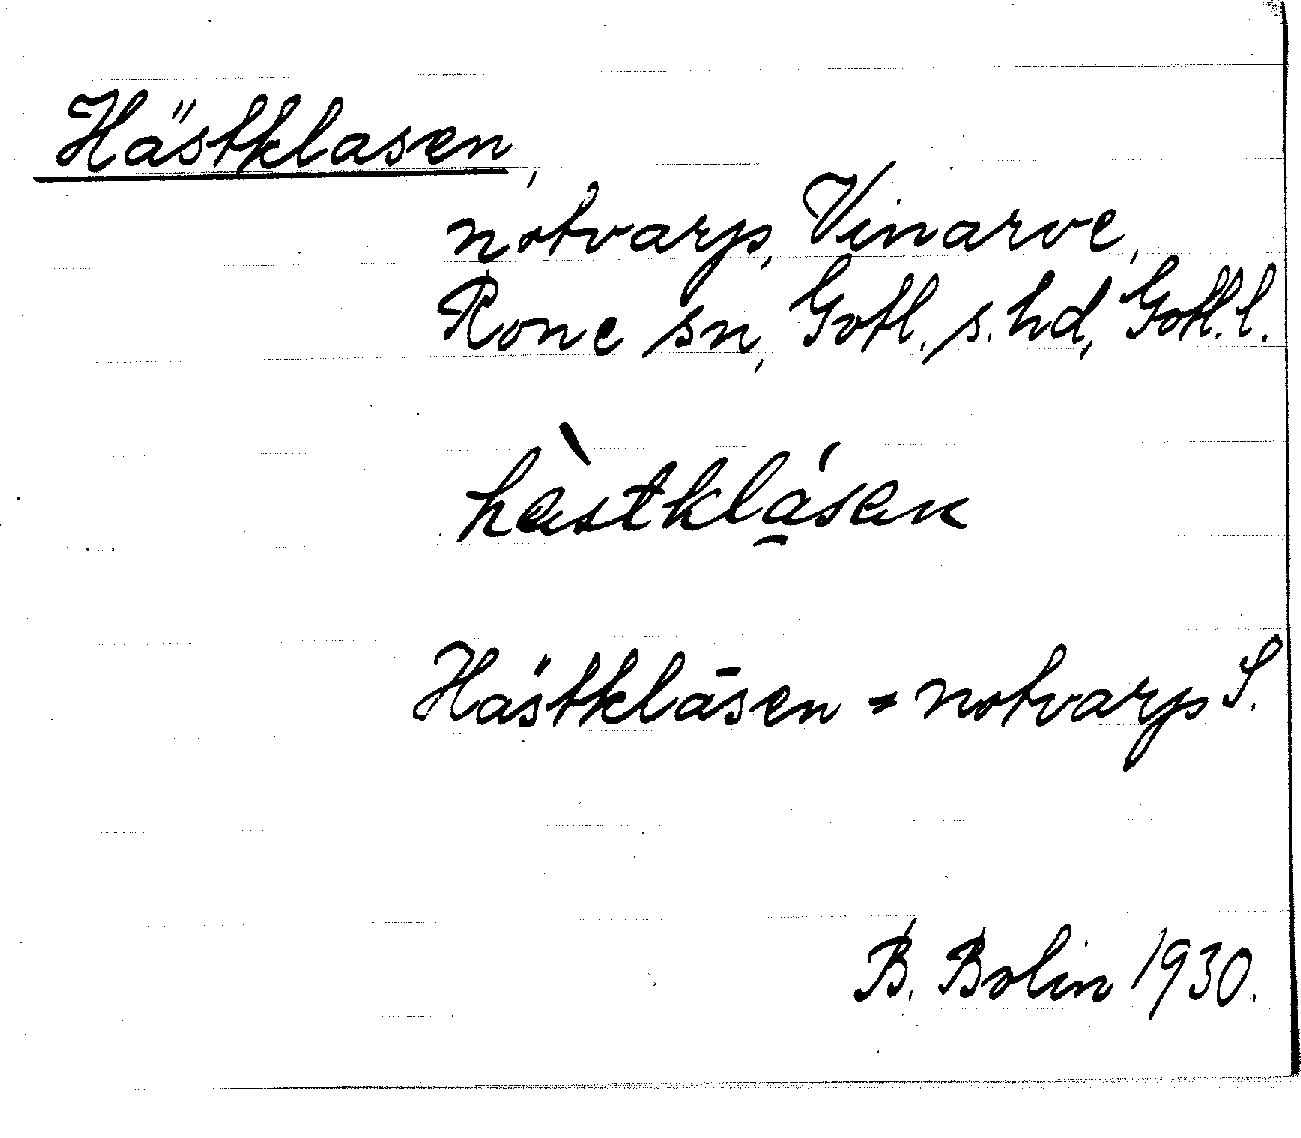 Hästklasen,
notvarp, Vinarve,
Rone sn, Gotl. s. hd, Gotl. l.
hæ̀stklá̱sen
Hästklāsen = notvarp S.
B. Bolin 1930.